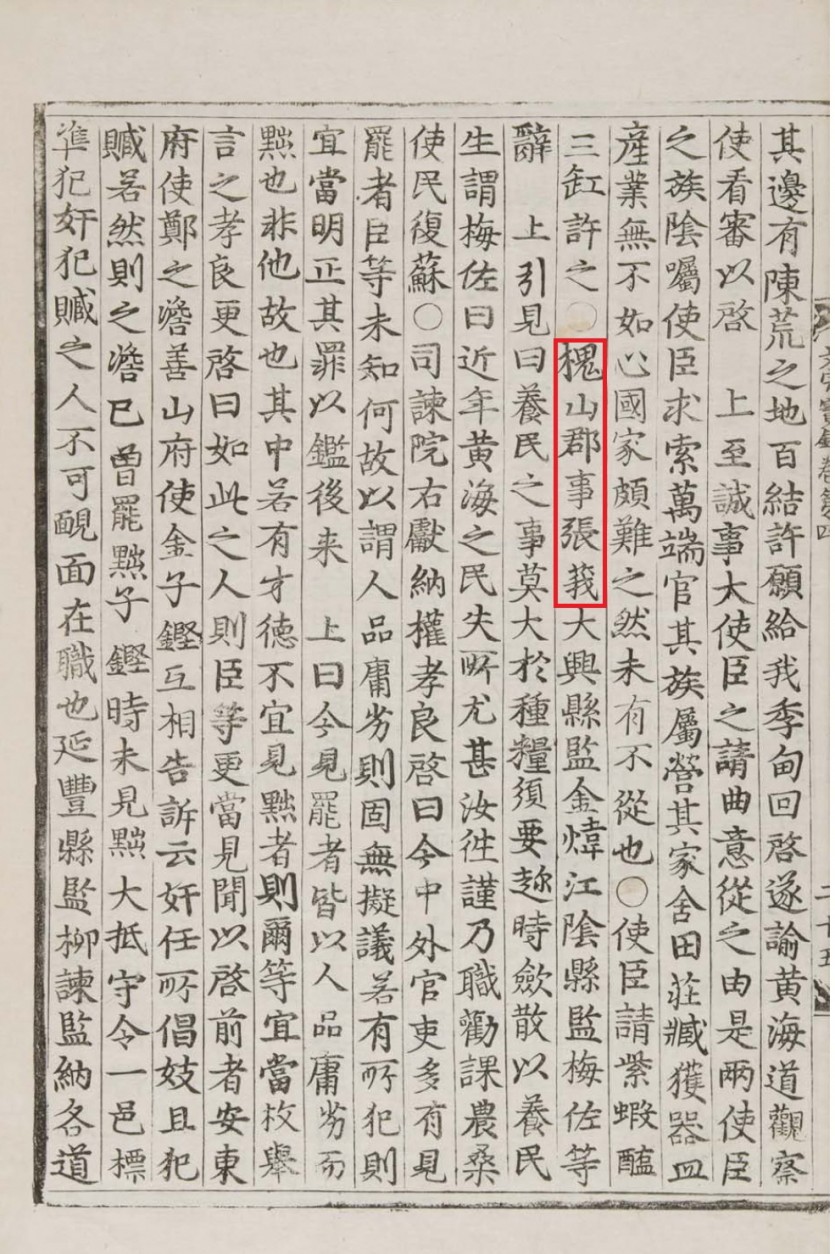 其邊有陳荒之地百結許願給我季甸回啓遂諭黃海道觀察
使看審以啓　上至誠事大使臣之請曲意從之由是兩使臣
之族陰囑使臣求索萬端官其族屬營其家舍田莊臧獲器皿
産業無不如心國家頗難之然未有不從也○使臣請紫蝦醢
三缸許之○槐山郡事張莪大興縣監金煒江陰縣監梅佐等
辭　上引見曰養民之事莫大於種糧須要趂時歛散以養民
生謂梅佐曰近年黃海之民失所尤甚汝往謹乃職勸課農桑
使民復蘇○司諫院右獻納權孝良啓曰今中外官吏多有見
罷者臣等未知何故以謂人品庸劣則固無擬議若有所犯則
宜當明正其罪以鑑後来　上曰今見罷者皆以人品庸劣而
黜也非他故也其中若有才德不宜見黜者則爾等宜當枚擧
言之孝良更啓曰如此之人則臣等更當見聞以啓前者安東
府使鄭之澹善山府使金子鏗互相告訴云奸任所倡妓且犯
贓若然則之澹已曾罷黜子鏗時未見黜大抵守令一邑標
準犯奸犯贓之人不可靦面在職也延豐縣監柳諫監納各道